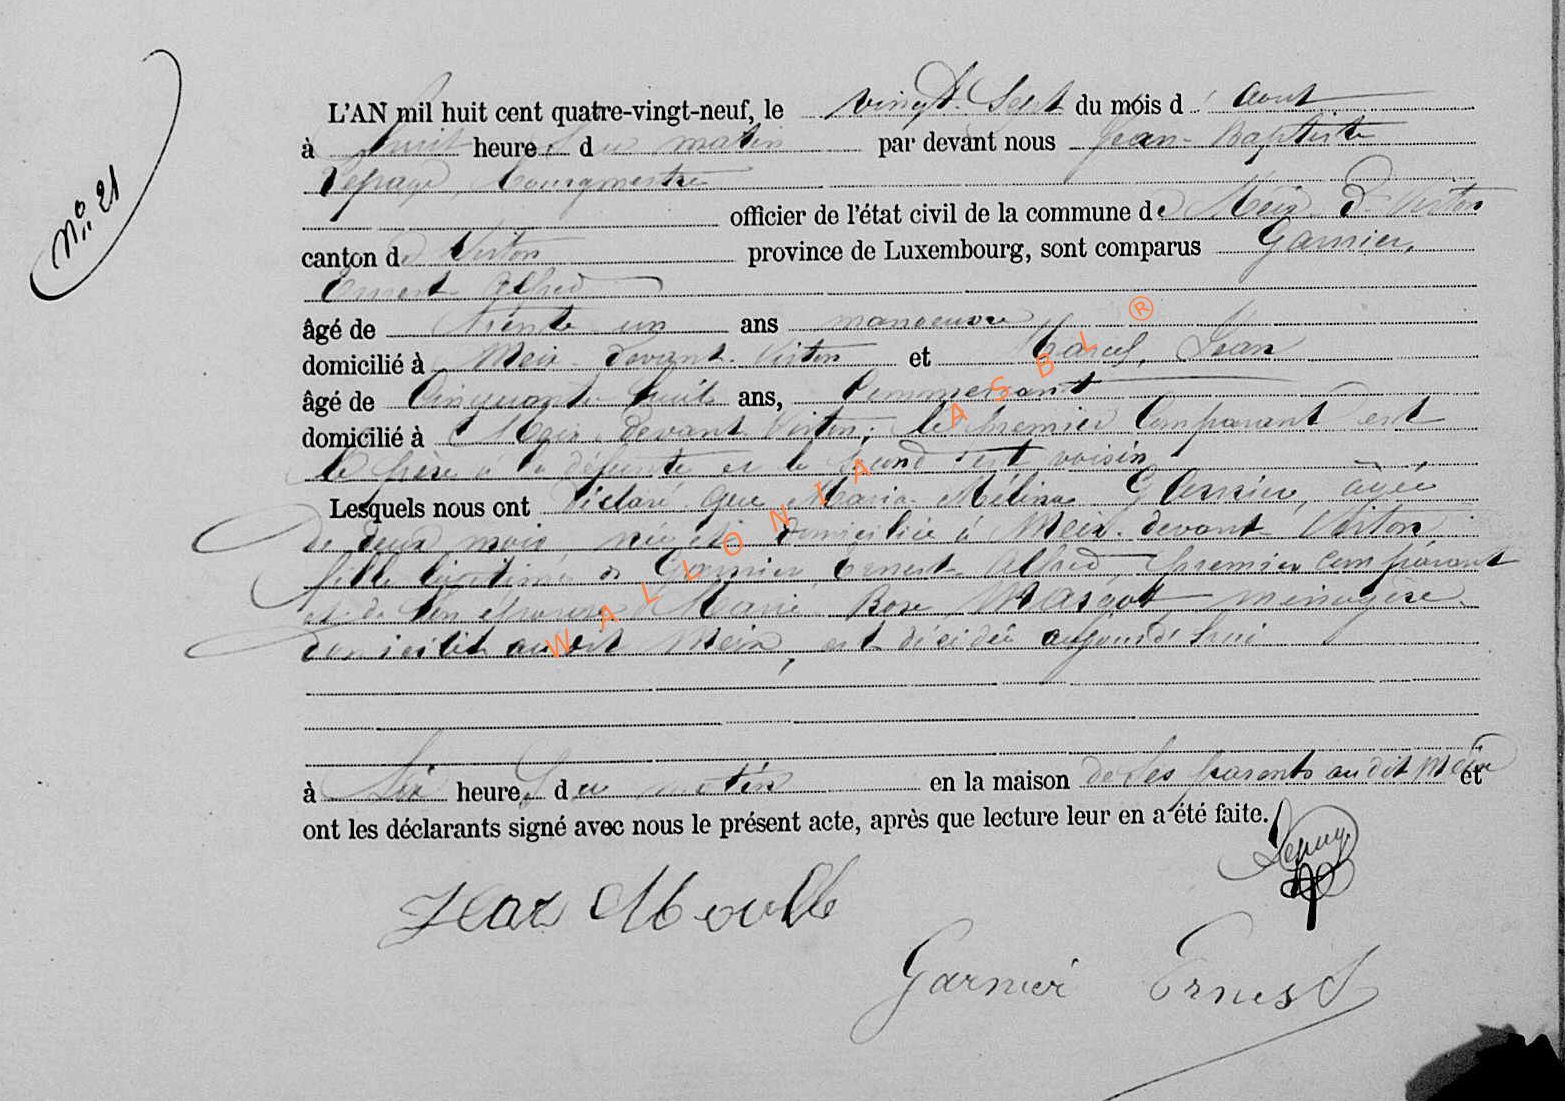 N° 21
L'AN mil huit cent quatre-vingt-neuf, le vingt-sept du mois d'août
à huit heures du matin par devant nous Jean-Baptiste
Lepage, bourgmestre
officier de l'état civil de la commune de Meix-d-Virton
canton de Virton province de Luxembourg, sont comparus Garnier,
Ernest Alfred
âgé de trente un ans manoeuvre
domicilié à Meix-devant-Virton et Marcel, Jean
âgé de cinquante huit ans,
domicilié à Meix-devant Virton; le premier comparant est
le père à la défunte et le second est voisin
Lesquels nous ont déclaré que Maria Mélina Garnier, âgée
de deux mois, née et domiciliée à Meix-devant-Virton
fille légitime de Garnier Ernest Alfred premier comparant
et de son épouse Marie Rose Margot ménagère
domiciliée audit Meix, est décédée aujourd'hui
à six heures du matin en la maison de ses parents audit Meix et
ont les déclarants signé avec nous le présent acte, après que lecture leur en a été faite.
Lepage
Garnier Ernest
WALLONIA ASBL ®